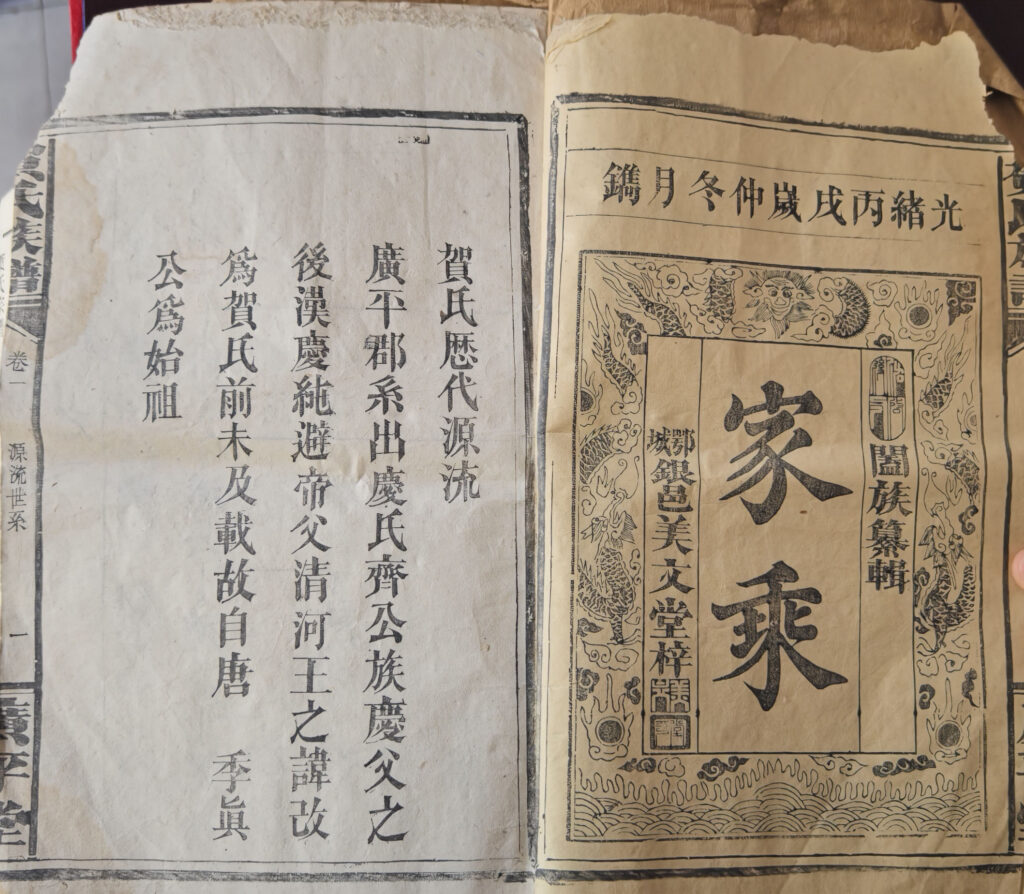 光緒丙戌歲仲冬月鐫
闔族纂輯
家乘
鄂城銀邑美文堂梓
賀氏歷代源流
廣平郡系出慶氏齊公族慶父之
後漢慶純避帝父清河王之諱改
爲賀氏前未及載故自唐 季眞
公爲始祖
氏族譜
卷一
源流世系
一
廣平堂